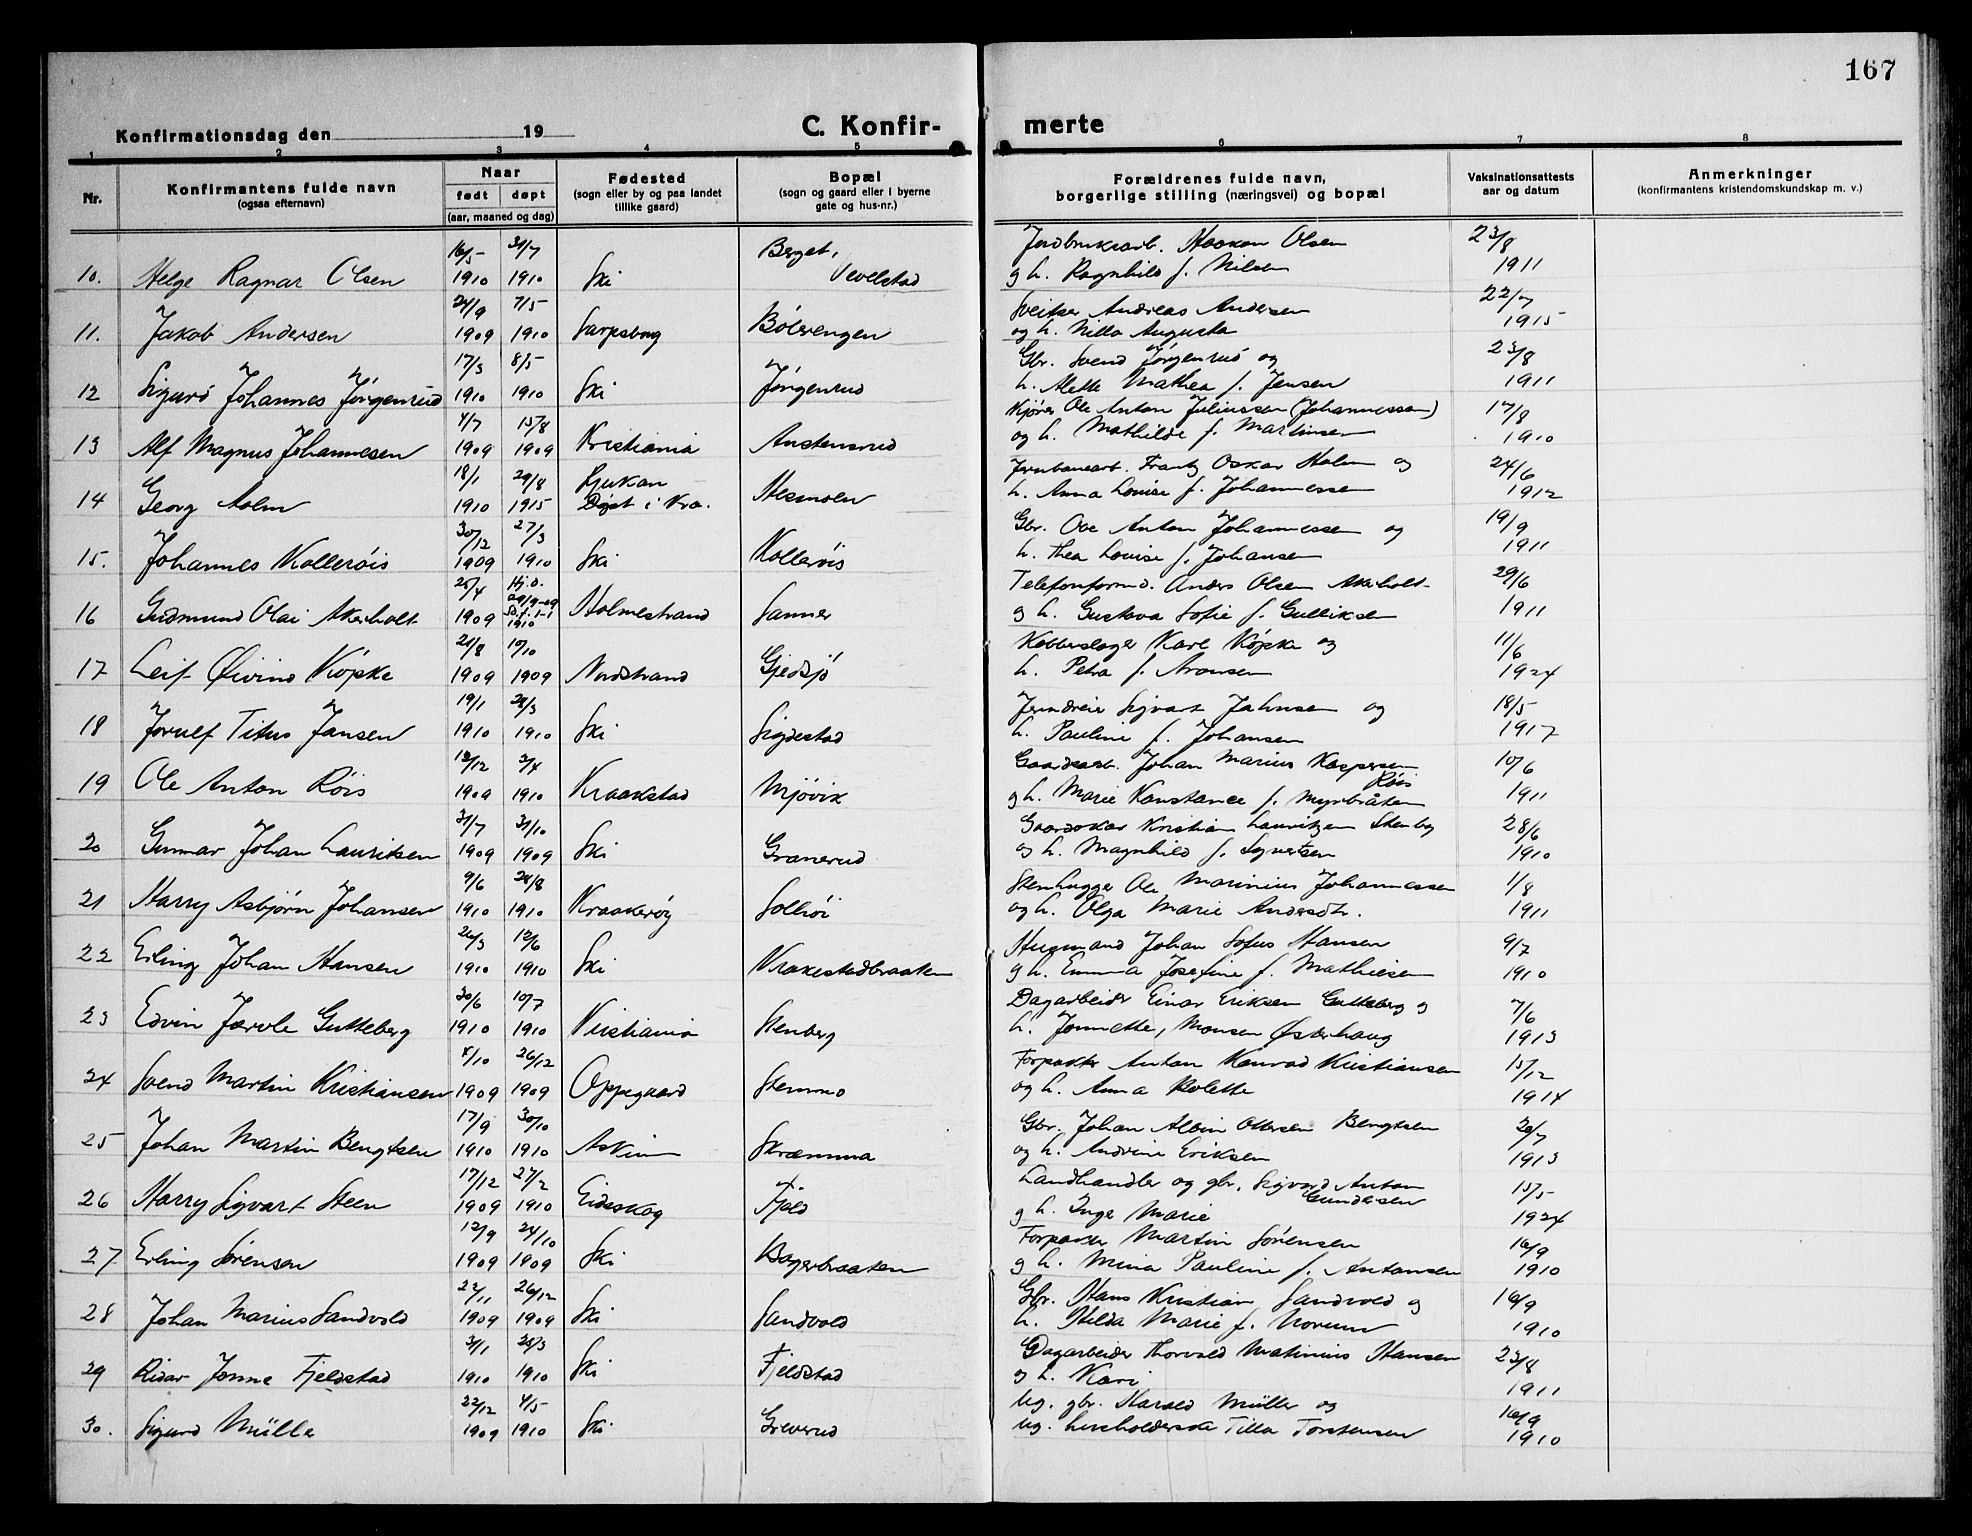 167
Konfirmationsdag den 19
C. Konfir-
merte
1 2 3 4 5 6 7 8
Nr.
Konfirmantens fulde navn
(ogsaa efternavn)
Naar
født døpt
(aar, maaned og dag)
Fødested
(sogn eller by og paa landet
tillike gaard)
Bopæl
(sogn og gaard eller i byerne
gate og hus-nr.)
Forældrenes fulde navn,
borgerlige stilling (næringsvei) og bopæl
Vaksinationsattests
aar og datum
Anmerkninger
(konfirmantens kristendomskundskap m. v.)
16/5 31/7 Berget, Jordbruksarb. Haakon Olsen 23/8
10. Helge Ragnar Olsen 1910 1910 Ski Vevelstad og h. Ragnhild f. Nilsen 1911
24/9 7/5 Sveitser Andreas Andersen 22/7
11. Jakob Andersen 1909 1910 Sarpsborg Bölerengen og h. Nilla Augusta 1915
17/3 8/5 Gbr. Svend Jörgenrud og 23/8
12 Sigurd Johannes Jörgenrud 1910 1910 Ski Jörgenrud h. Mette Mathea f. Jensen 1911
4/7 15/8 Kjører Ole Anton Juliussen (Johannessen) 17/8
13 Alf Magnus Johannesen 1909 1909 Kristiania Austensrud og h. Mathilde f. Martinsen 1910
18/1 29/8 Rjukan Jernbanearb. Frantz Oskar Holm og 24/6
14 Georg Holm 1910 1915 Døpt i Kra. Hesmolen h. Anna Louise f. Johannessen 1912
30/12 27/3 Gbr. Ove Anton Johannessen og 19/9
15. Johannes Kolleröis 1909 1910 Ski Kolleröis h. Thea Louise f. Johansen 1911
25/4 Hj.d. 29/9-09 Telefonformd. Anders Olsen Akerholt 29/6
16 Gudmund Olai Akerholt 1909 1910 Holmestrand Sanner og h. Gustava Sofie f. Gulliksen 1911
21/8 10/10 Kobberslager Karl Köpke og 11/6
17 Leif Øivind Köpke 1909 1909 Nordstrand Gjedsjö h. Petra f. Aronsen 1924
19/1 28/3 Jerndreier Sigvart Jahnsen og 18/5
18 Jorulf Titus Jansen 1910 1910 Ski Sigdestad h. Pauline f. Johansen 1917
12/12 3/4 Gaardsarb. Johan Marius Kaspersen 10/6
19 Ole Anton Röis 1909 1910 Kraakstad Mjövik Röis
og h. Marie Konstance f. Myrbråten 1911
31/7 31/10 Gaardskar Kristian Lauritzen Stenby 28/6
20 Gunnar Johan Lauritsen 1909 1909 Ski Granerud og h. Magnhild f. Syvertsen 1910
9/6 28/8 Stenhugger Ole Marinius Johannessen 1/8
21 Harry Asbjørn Johansen 1910 1910 Kraakerøy Solhöi og h. Olga Marie Andersdtr. 1911
26/3 12/6 Husmand Johan Sofus Hansen 9/7
22 Erling Johan Hansen 1910 1910 Ski Krakestadbraaten og h. Emma Josefine f. Mathiesen 1910
30/6 10/7 Dagarbeider Einar Eriksen Gutteberg og 7/6
23 Edvin Jærvle Gutteberg 1910 1910 Kristiania Stenberg h. Jonnette, Monsen Østerhaug 1913
4/10 26/12 Forpakter Anton Konrad Kristiansen 15/12
24 Svend Martin Kristiansen 1909 1909 Oppegaard Stenmo og h. Anna Kolette 1914
17/9 30/10 Gbr. Johan Albin Ottersen Bengtsen 20/7
25 Johan Martin Bengtsen 1910 1910 Askim Skræmma og h. Andrine Eriksen 1913
17/12 27/2 Landhandler og gbr. Sigvard Anton 15/5
26 Harry Sigvart Steen 1909 1910 Eidskog Fjeld Gundersen
og h. Inga Marie 1924
12/9 24/10 Forpakter Martin Sörensen 16/9
27 Erling Sörensen 1909 1909 Ski Bagerbraaten og h. Mina Pauline f. Antonsen 1910
22/11 26/12 Gbr. Hans Kristian Sandvold og 16/9
28 Johan Marius Sandvold 1909 1909 Ski Sandvold h. Hilda Marie f. Norum 1910
31/1 28/3 Dagarbeider Thorvald Matinius Hansen 23/8
29 Reidar Jonne Fjeldstad 1910 1910 Ski Fjeldstad og h. Kari 1911
22/12 4/5 Ug. gbr. Harald Müller og 16/9
30. Sigurd Müller 1909 1910 Ski Greverud ug. husholderske Tilla Torstensen 1910